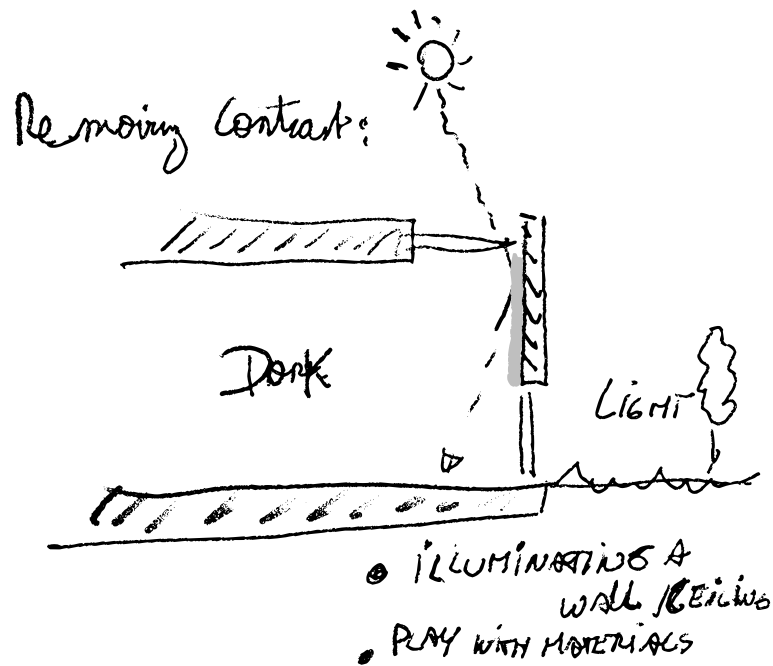 Removing Contrast:
DARK
LIGHT
• ILLUMINATING A
WALL / CEILING
• PLAY WITH MATERIALS